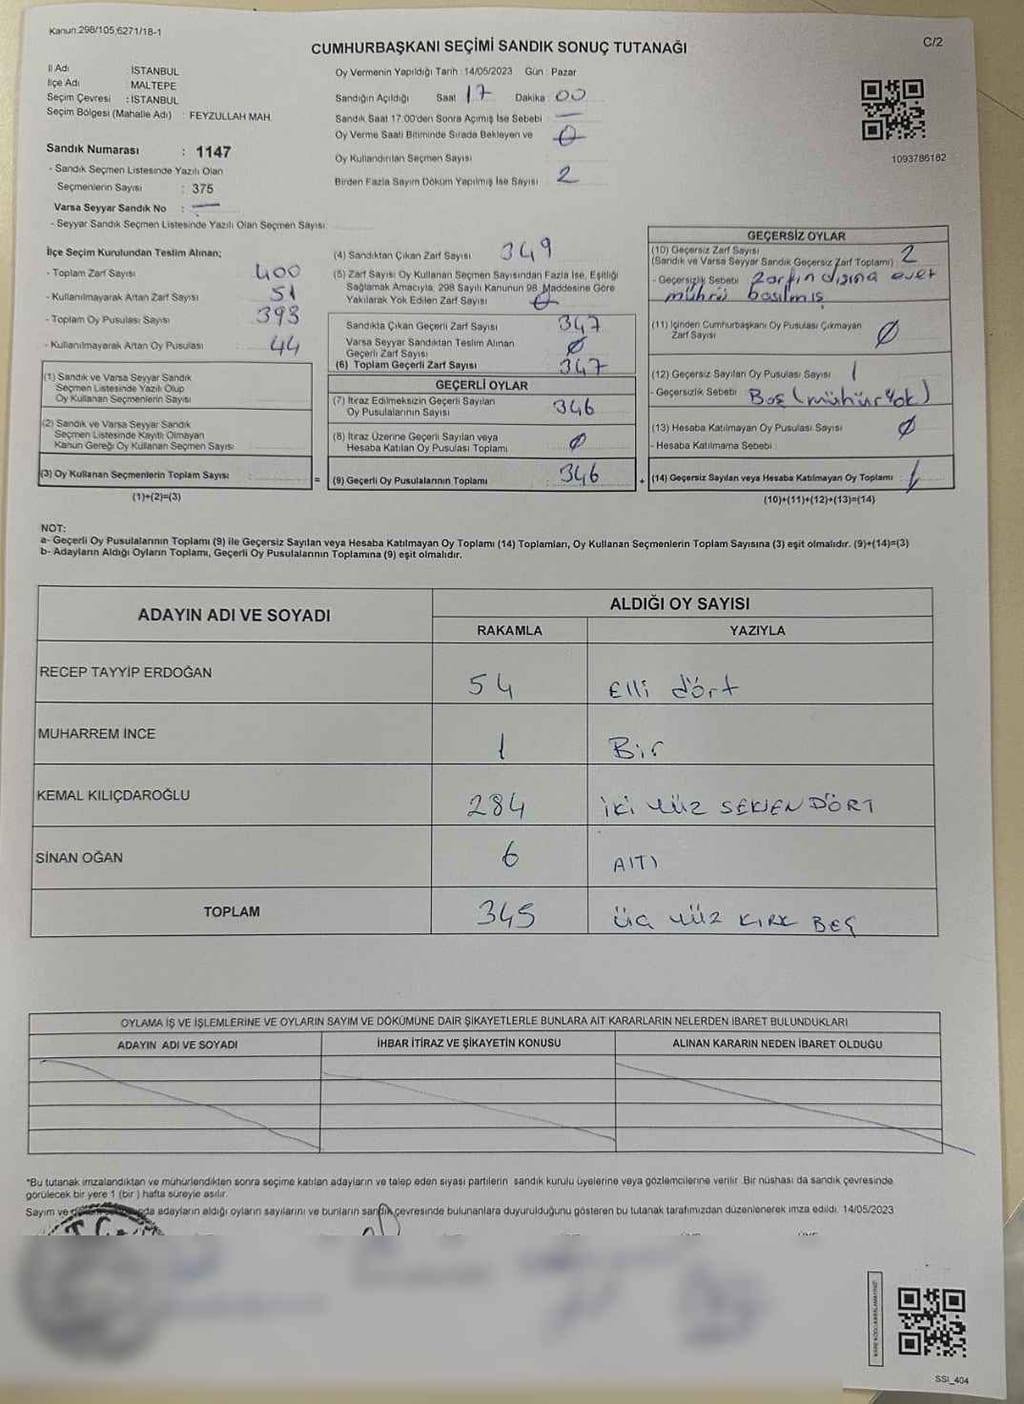 Kanun:298/105,6271/18-1
C/2
CUMHURBAŞKANI SEÇİMİ SANDIK SONUÇ TUTANAĞI
İl Adı : İSTANBUL
İlçe Adı : MALTEPE
Seçim Çevresi : İSTANBUL
Seçim Bölgesi (Mahalle Adı) : FEYZULLAH MAH.
Sandık Numarası : 1147
- Sandık Seçmen Listesinde Yazılı Olan
Seçmenlerin Sayısı : 375
Varsa Seyyar Sandık No : —
- Seyyar Sandık Seçmen Listesinde Yazılı Olan Seçmen Sayısı:
Oy Vermenin Yapıldığı Tarih : 14/05/2023 Gün : Pazar
Sandığın Açıldığı Saat 17 Dakika : 00
Sandık Saat 17:00'den Sonra Açımış İse Sebebi : —
Oy Verme Saati Bitiminde Sırada Bekleyen ve
Oy Kullandırılan Seçmen Sayısı : 0
Birden Fazla Sayım Döküm Yapılmış İse Sayısı : 2
1093786182
İlçe Seçim Kurulundan Teslim Alınan;
- Toplam Zarf Sayısı : 400
- Kullanılmayarak Artan Zarf Sayısı : 51
- Toplam Oy Pusulası Sayısı : 393
- Kullanılmayarak Artan Oy Pusulası : 44
(1) Sandık ve Varsa Seyyar Sandık
Seçmen Listesinde Yazılı Olup
Oy Kullanan Seçmenlerin Sayısı
(2) Sandık ve Varsa Seyyar Sandık
Seçmen Listesinde Kayıtlı Olmayan
Kanun Gereği Oy Kullanan Seçmen Sayısı
(3) Oy Kullanan Seçmenlerin Toplam Sayısı :
(1)+(2)=(3)
(4) Sandıktan Çıkan Zarf Sayısı : 349
(5) Zarf Sayısı Oy Kullanan Seçmen Sayısından Fazla İse, Eşitliği
Sağlamak Amacıyla, 298 Sayılı Kanunun 98. Maddesine Göre
Yakılarak Yok Edilen Zarf Sayısı : 0
Sandıkta Çıkan Geçerli Zarf Sayısı : 347
Varsa Seyyar Sandıktan Teslim Alınan
Geçerli Zarf Sayısı : Ø
(6) Toplam Geçerli Zarf Sayısı : 347
GEÇERLİ OYLAR
(7) İtiraz Edilmeksizin Geçerli Sayılan
Oy Pusulalarının Sayısı : 346
(8) İtiraz Üzerine Geçerli Sayılan veya
Hesaba Katılan Oy Pusulası Toplamı : Ø
= (9) Geçerli Oy Pusulalarının Toplamı : 346
GEÇERSİZ OYLAR
(10) Geçersiz Zarf Sayısı
(Sandık ve Varsa Seyyar Sandık Geçersiz Zarf Toplamı) : 2
- Geçersizlik Sebebi : Zarfın dışına evet
mührü basılmış
(11) İçinden Cumhurbaşkanı Oy Pusulası Çıkmayan
Zarf Sayısı : Ø
(12) Geçersiz Sayılan Oy Pusulası Sayısı : 1
- Geçersizlik Sebebi : Boş (mühür yok)
(13) Hesaba Katılmayan Oy Pusulası Sayısı : Ø
- Hesaba Katılmama Sebebi :
+ (14) Geçersiz Sayılan veya Hesaba Katılmayan Oy Toplamı : 1
(10)+(11)+(12)+(13)=(14)
NOT:
a- Geçerli Oy Pusulalarının Toplamı (9) ile Geçersiz Sayılan veya Hesaba Katılmayan Oy Toplamı (14) Toplamları, Oy Kullanan Seçmenlerin Toplam Sayısına (3) eşit olmalıdır. (9)+(14)=(3)
b- Adayların Aldığı Oyların Toplamı, Geçerli Oy Pusulalarının Toplamına (9) eşit olmalıdır.
ADAYIN ADI VE SOYADI
ALDIĞI OY SAYISI
RAKAMLA YAZIYLA
RECEP TAYYİP ERDOĞAN 54 Elli dört
MUHARREM İNCE 1 Bir
KEMAL KILIÇDAROĞLU 284 iki yüz SEKSEN DÖRT
SİNAN OĞAN 6 AltI
TOPLAM 345 üç yüz KIRK BEŞ
OYLAMA İŞ VE İŞLEMLERİNE VE OYLARIN SAYIM VE DÖKÜMÜNE DAİR ŞİKAYETLERLE BUNLARA AİT KARARLARIN NELERDEN İBARET BULUNDUKLARI
ADAYIN ADI VE SOYADI İHBAR İTİRAZ VE ŞİKAYETİN KONUSU ALINAN KARARIN NEDEN İBARET OLDUĞU
*Bu tutanak imzalandıktan ve mühürlendikten sonra seçime katılan adayların ve talep eden siyasi partilerin sandık kurulu üyelerine veya gözlemcilerine verilir. Bir nüshası da sandık çevresinde
görülecek bir yere 1 (bir) hafta süreyle asılır.
Sayım ve adayların aldığı oyların sayılarını ve bunların sandık çevresinde bulunanlara duyurulduğunu gösteren bu tutanak tarafımızdan düzenlenerek imza edildi. 14/05/2023
T.C.
SSI_404